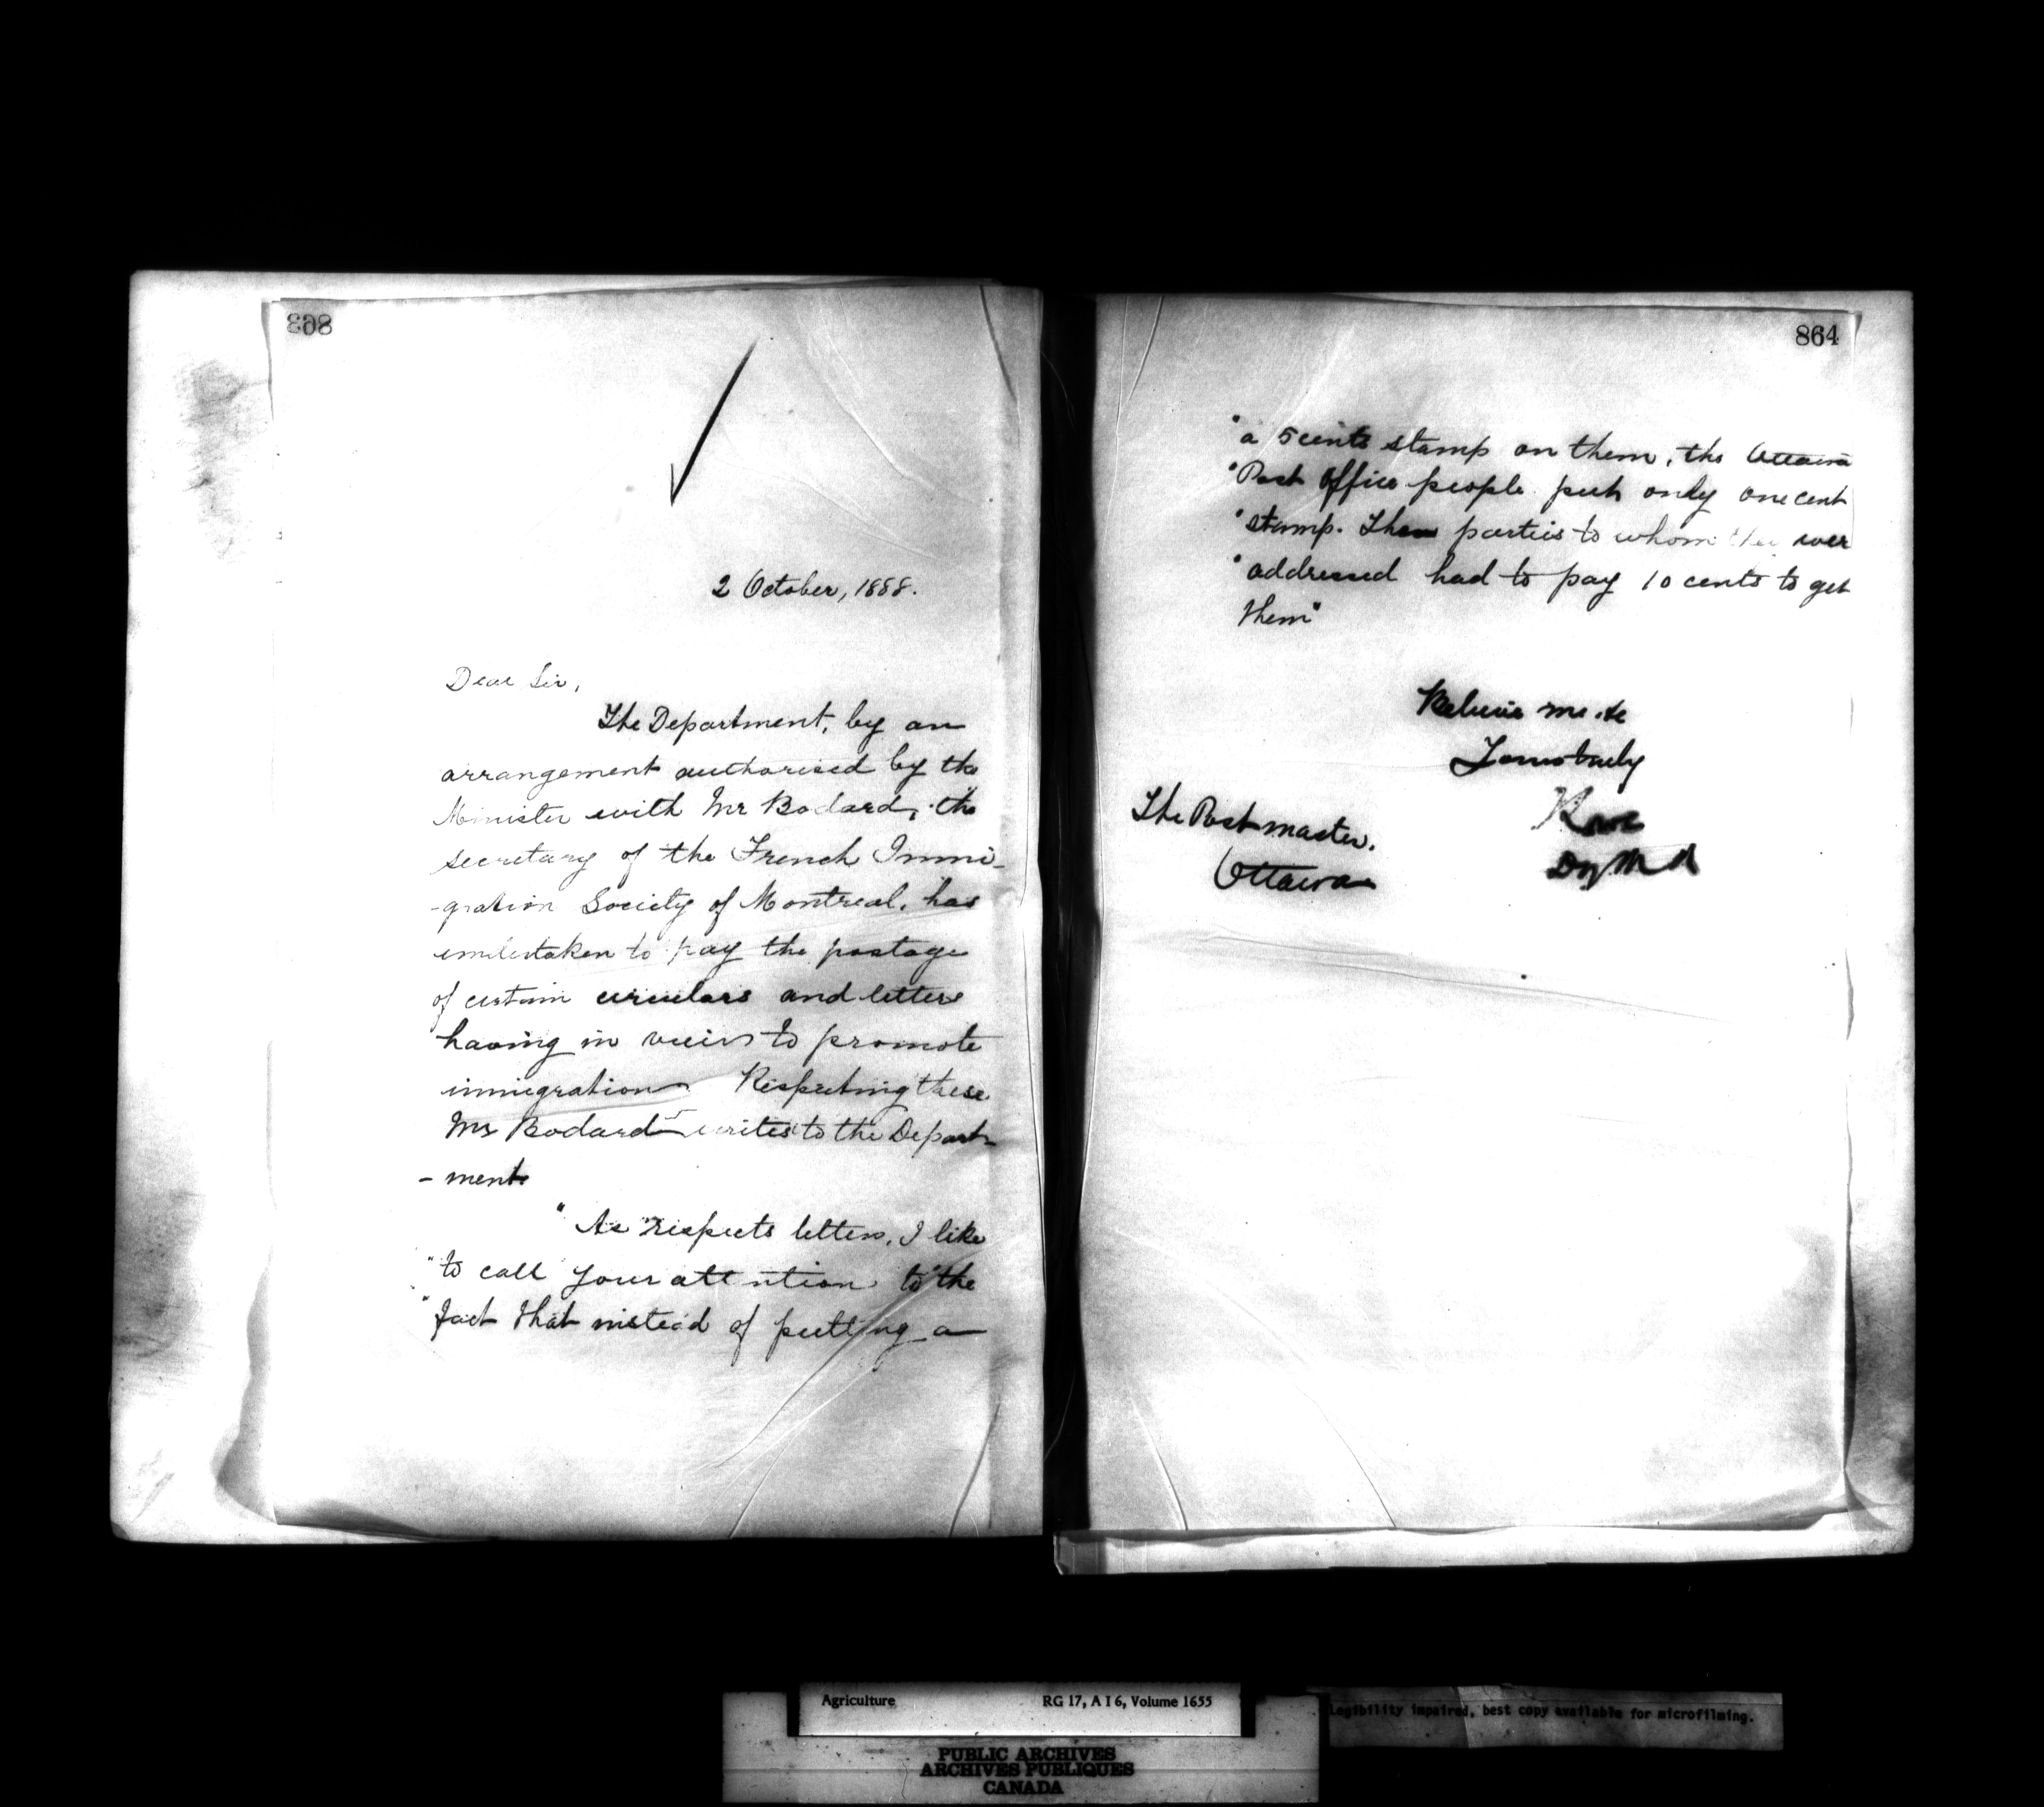 863
2 October, 1888.
Dear Sir,
The Department, by an
arrangement authorised by the
Minister with Mr Bodard, the
secretary of the French Immi-
-gration Society of Montreal, has
undertaken to pay the postage
of certain circulars and letters
having in view to promote
immigration. Respecting these
Mr Bodard writes to the Depart-
-ment.
"As respects letters, I like
"to call your attention to the
"fact that instead of putting a
864
"a 5 cents stamp on them, the Ottawa
"Post Office people put only one cent
"stamp. The parties to whom they wer
"addressed had to pay 10 cents to get
them"
Believe me &c
Yours truly
The Postmaster.
Ottawa
Agriculture RG 17, A I 6, Volume 1655
Legibility impaired, best copy available for microfilming.
PUBLIC ARCHIVES
ARCHIVES PUBLIQUES
CANADA